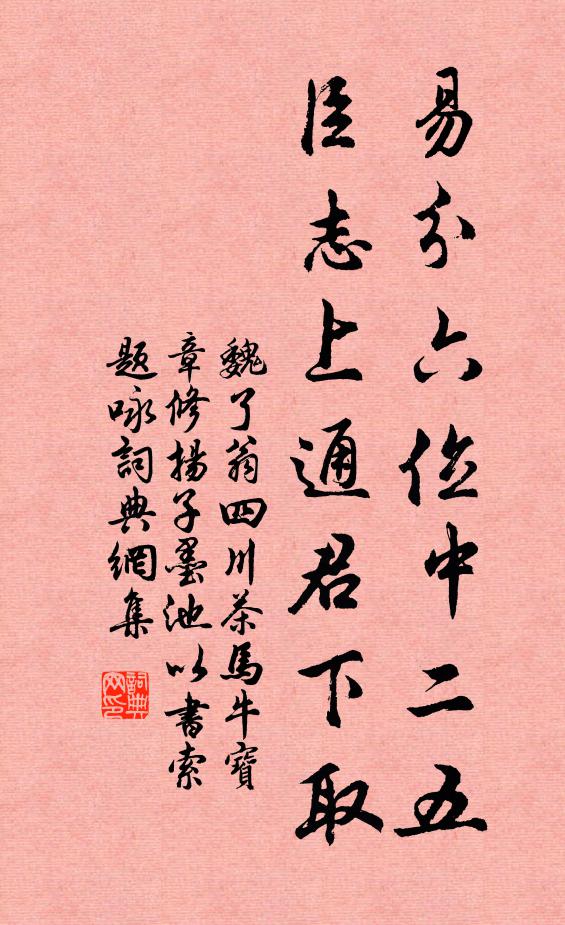 易分六位中二五
臣志上通君下取
魏了翁四川茶馬牛寶
章修揚子墨池以書索
題咏詞典網集
詞典網印